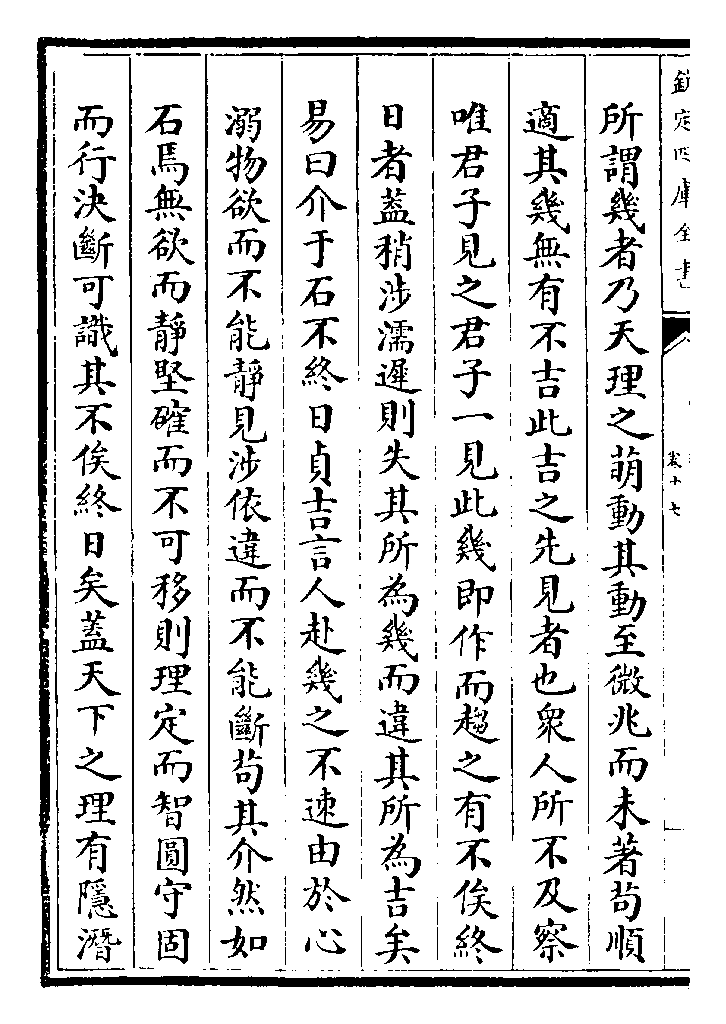 欽定四庫全書
卷十七
所謂幾者乃天理之萌動其動至微兆而未著苟順
適其幾無有不吉此吉之先見者也衆人所不及察
唯君子見之君子一見此幾即作而趨之有不俟終
日者蓋稍涉濡遲則失其所為幾而違其所為吉矣
易曰介于石不終日貞吉言人赴幾之不速由於心
溺物欲而不能靜見涉依違而不能斷苟其介然如
石焉無欲而靜堅確而不可移則理定而智圓守固
而行決斷可識其不俟終日矣蓋天下之理有隱潛